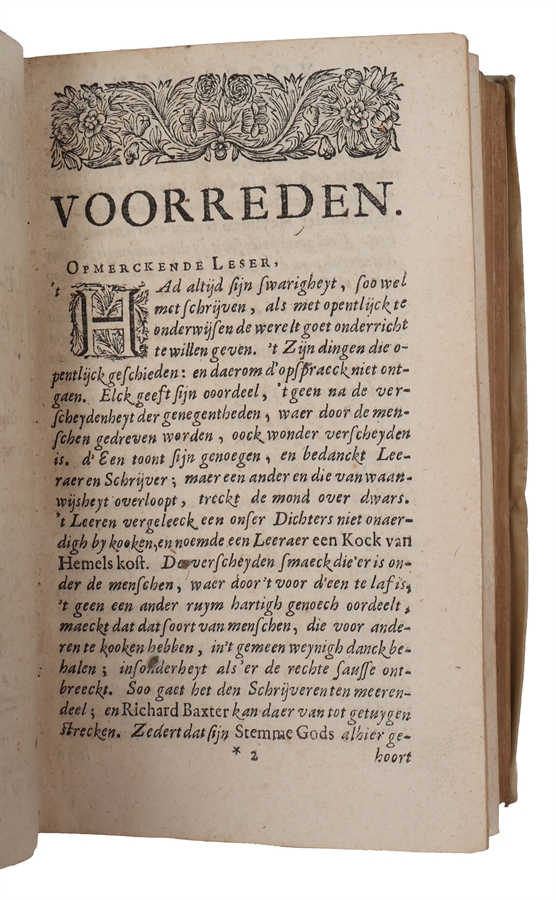 VOORREDEN.
OPMERCKENDE LESER,
't HAd altijd ſijn ſwarigheyt, ſoo wel
met ſchrijven, als met opentlijck te
onderwijſen de werelt goet onderricht
te willen geven. 't Zijn dingen die o-
pentlijck geſchieden: en daerom d'opſpraeck niet ont-
gaen. Elck geeft ſijn ooordeel, 't geen na de ver-
ſcheydenheyt der genegentheden, waer door de men-
ſchen gedreven worden, oock wonder verſcheyden
is. d'Een toont ſijn genoegen, en bedanckt Lee-
raer en Schrijver; maer een ander en die van waan-
wijsheyt overloopt, treckt de mond over dwars.
't Leeren vergeleeck een onſer Dichters niet onaer-
digh by kooken, en noemde een Leeraer een Kock van
Hemels koſt. De verſcheyden ſmaeck die'er is on-
der de menſchen, waer door't voor d'een te laf is,
't geen een ander ruym hartigh genoech oordeelt,
maeckt dat dat ſoort van menſchen, die voor ande-
ren te kooken hebben, in't gemeen weynigh danck be-
halen; inſonderheyt als'er de rechte ſauſſe ont-
breeckt. Soo gaet het den Schrijveren ten meeren-
deel; en Richard Baxter kan daer van tot getuygen
ſtrecken. Zedert dat ſijn Stemme Gods alhier ge-
* 2 hoort